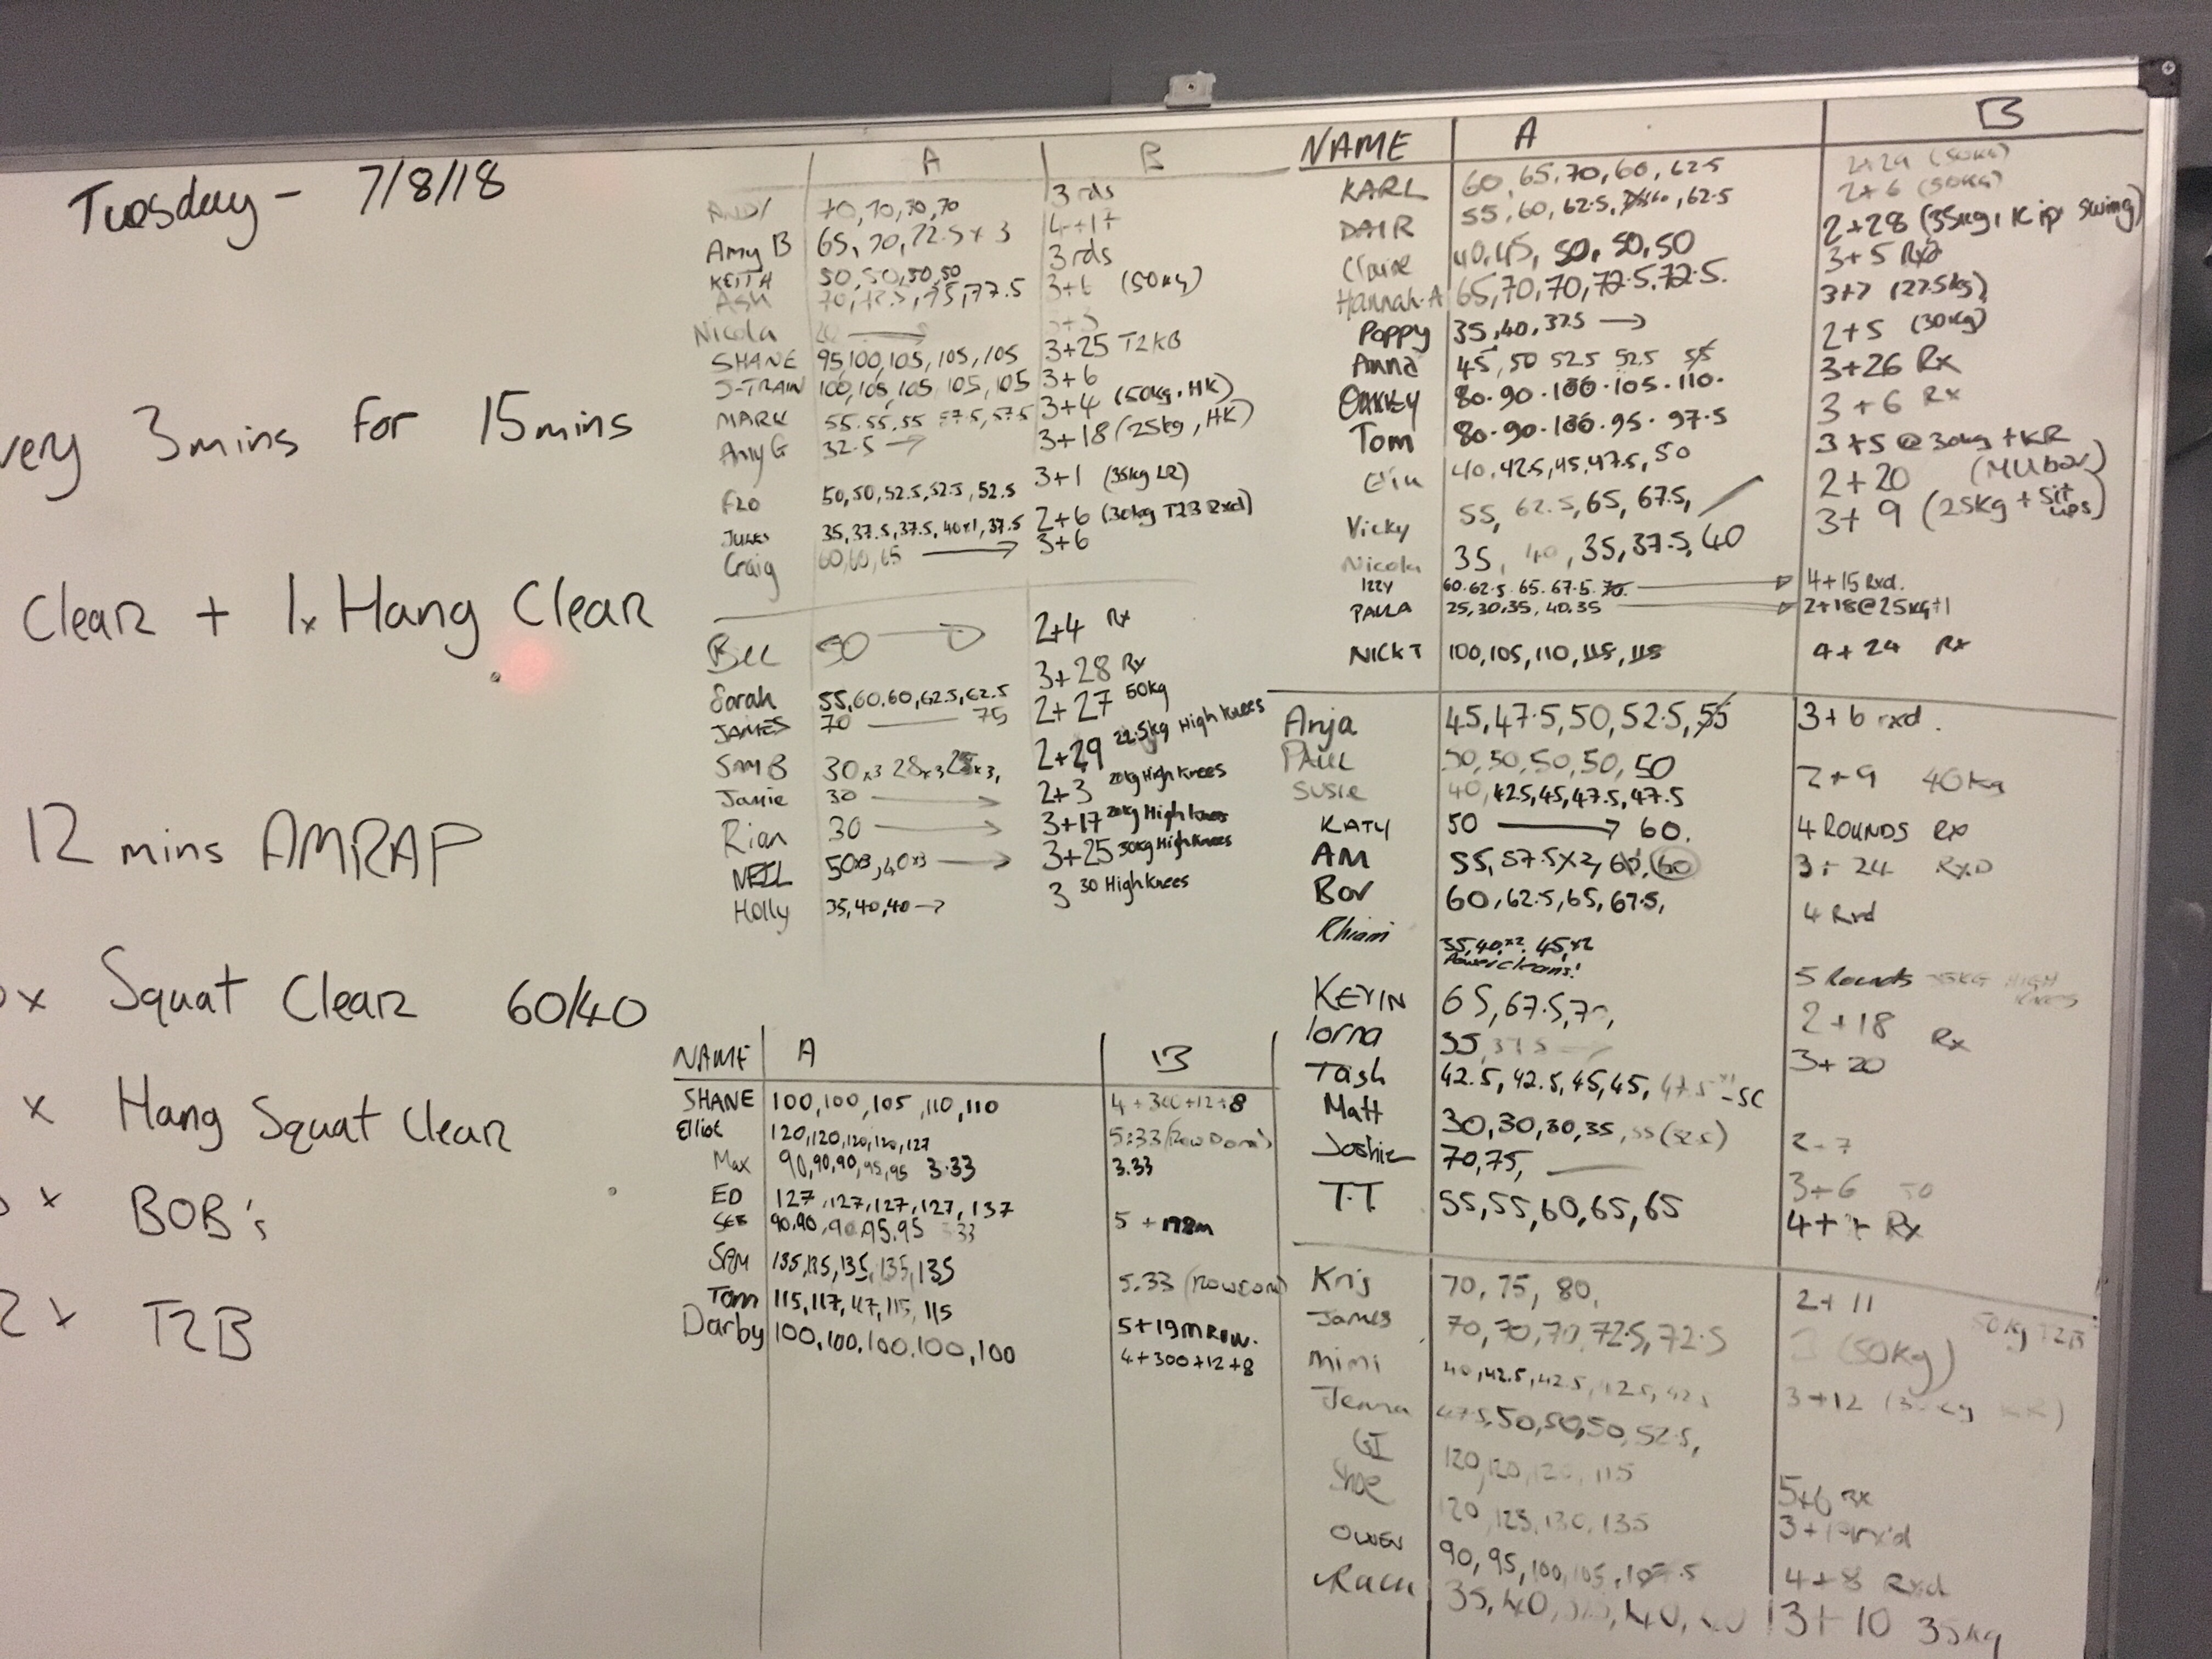 Tuesday - 7/8/18
very 3mins for 15mins
Clean + 1x Hang Clean
12 mins AMRAP
x Squat Clean 60/40
x Hang Squat Clean
x BOB's
2x T2B
A B
ANDY 70,70,70,70 3 rds
Amy B 65, 70, 72.5 x 3 4+17
KEITH 50,50,50,50 3 rds
Ash 70,72.5,75,77.5 3+6 (50kg)
Nicola
SHANE 95,100,105,105,105 3+25 T2KB
J-TRAIN 100,105,105,105,105 3+6
MARK 55.55.55 57.5,57.5 3+4 (50kg, HK)
Amy G 32.5 → 3+18 (25kg, HK)
FLO 50,50,52.5,52.5,52.5 3+1 (35kg LR)
JULES 35,37.5,37.5,40x1,37.5 2+6 (30kg T2B Rxd)
Craig 60,60,65 → 3+6
Bec 50 → 2+4 Rx
Sarah 55,60,60,62.5,62.5 3+28 Rx
JAMES 70 — 75 2+27 50kg
SAM B 30x3 28x3 x3, 2+29 22.5kg High Knees
Jamie 30 → 2+3 20kg High Knees
Rian 30 → 3+17 20kg High knees
NEIL 50x3,40x3 → 3+25 30kg High Knees
Holly 35,40,40 → 3 30 High knees
NAME A B
SHANE 100,100,105,110,110 4+300+12+8
Elliot 120,120,120,120,127 5:33 (Row Dom)
Max 90,90,90,95,95 3.33 3.33
ED 127,127,127,127,137
SEB 90,90,90,95,95 33 5 + 178m
SAM 135,135,135,135,135
Tom 115,117,117,115,115 5.33
Darby 100,100,100,100,100 5+19m ROW.
4+300+12+8
NAME A B
KARL 60,65,70,60,62.5 (50KG)
DAIR 55,60,62.5, ,62.5 2+6 (50KG)
Claire 40,45,50,50,50 2+28 (35kg, Kip swing)
Hannah.A 65,70,70,72.5,72.5. 3+5 Rxd
Poppy 35,40,37.5 → 3+7 (27.5kg)
Anna 45,50 52.5 52.5 55 2+5 (30kg)
OAKKY 80.90.100.105.110. 3+26 Rx
Tom 80.90.100.95.97.5 3+6 Rx
40,42.5,45,47.5,50 3+5 @ 30kg + KR
Vicky 55, 62.5, 65, 67.5, 2+20 (MU bar)
Nicola 35, 40, 35, 37.5, 40 3+9 (25kg + sit ups)
IZZY 60.62.5.65.67.5.70. → 4+15 Rxd.
PAULA 25,30,35,40,35 → 2+18@25kg+1
NICK T 100,105,110,115,115 4+24 Rx
Anja 45,47.5,50,52.5,55 3+6 rxd.
PAUL 50,50,50,50,50
Susie 40,42.5,45,47.5,47.5 2+9 40kg
KATY 50 → 60.
AM 55,57.5x2,60,60 4 ROUNDS RX
Bov 60,62.5,65,67.5, 3+24 RXD
Rhian 35,40x2,45x2 4 Rxd
Power cleans!
KEVIN 65,67.5,70, 5 Rounds HIGH KNEES
lorna 35,37.5 → 2+18 Rx
Tash 42.5,42.5,45,45,47.5 x1 -SC 3+20
Matt 30,30,30,35,
Joshie 70,75, — 2+7
T.T 55,55,60,65,65 3+6 50
4+ Rx
Kris 70, 75, 80, 2+11 50kg T2B
James 70,70,70,72.5,72.5 3 (50kg)
mimi 40,42.5,42.5,42.5,42.5 3+12
Jenna 47.5,50,50,50,52.5,
GI 120,120,120,115
Shoe 120,125,130,135 5+6 RX
OWEN 90,95,100,105,107.5 3+ rx'd
35,40, 40, 4+8 Rxd
3+10 35kg